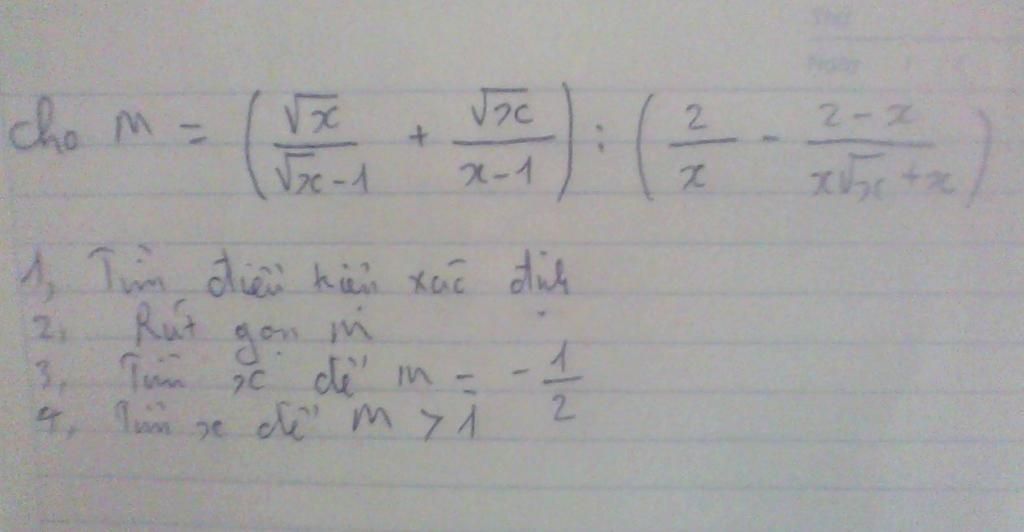 Thứ
Ngày
Cho M = (√x/(√x-1) + √x/(x-1)) : (2/x - (2-x)/(x√x+x))
1, Tìm điều kiện xác định
2, Rút gọn M
3, Tìm x để M = -1/2
4, Tìm x để M > 1